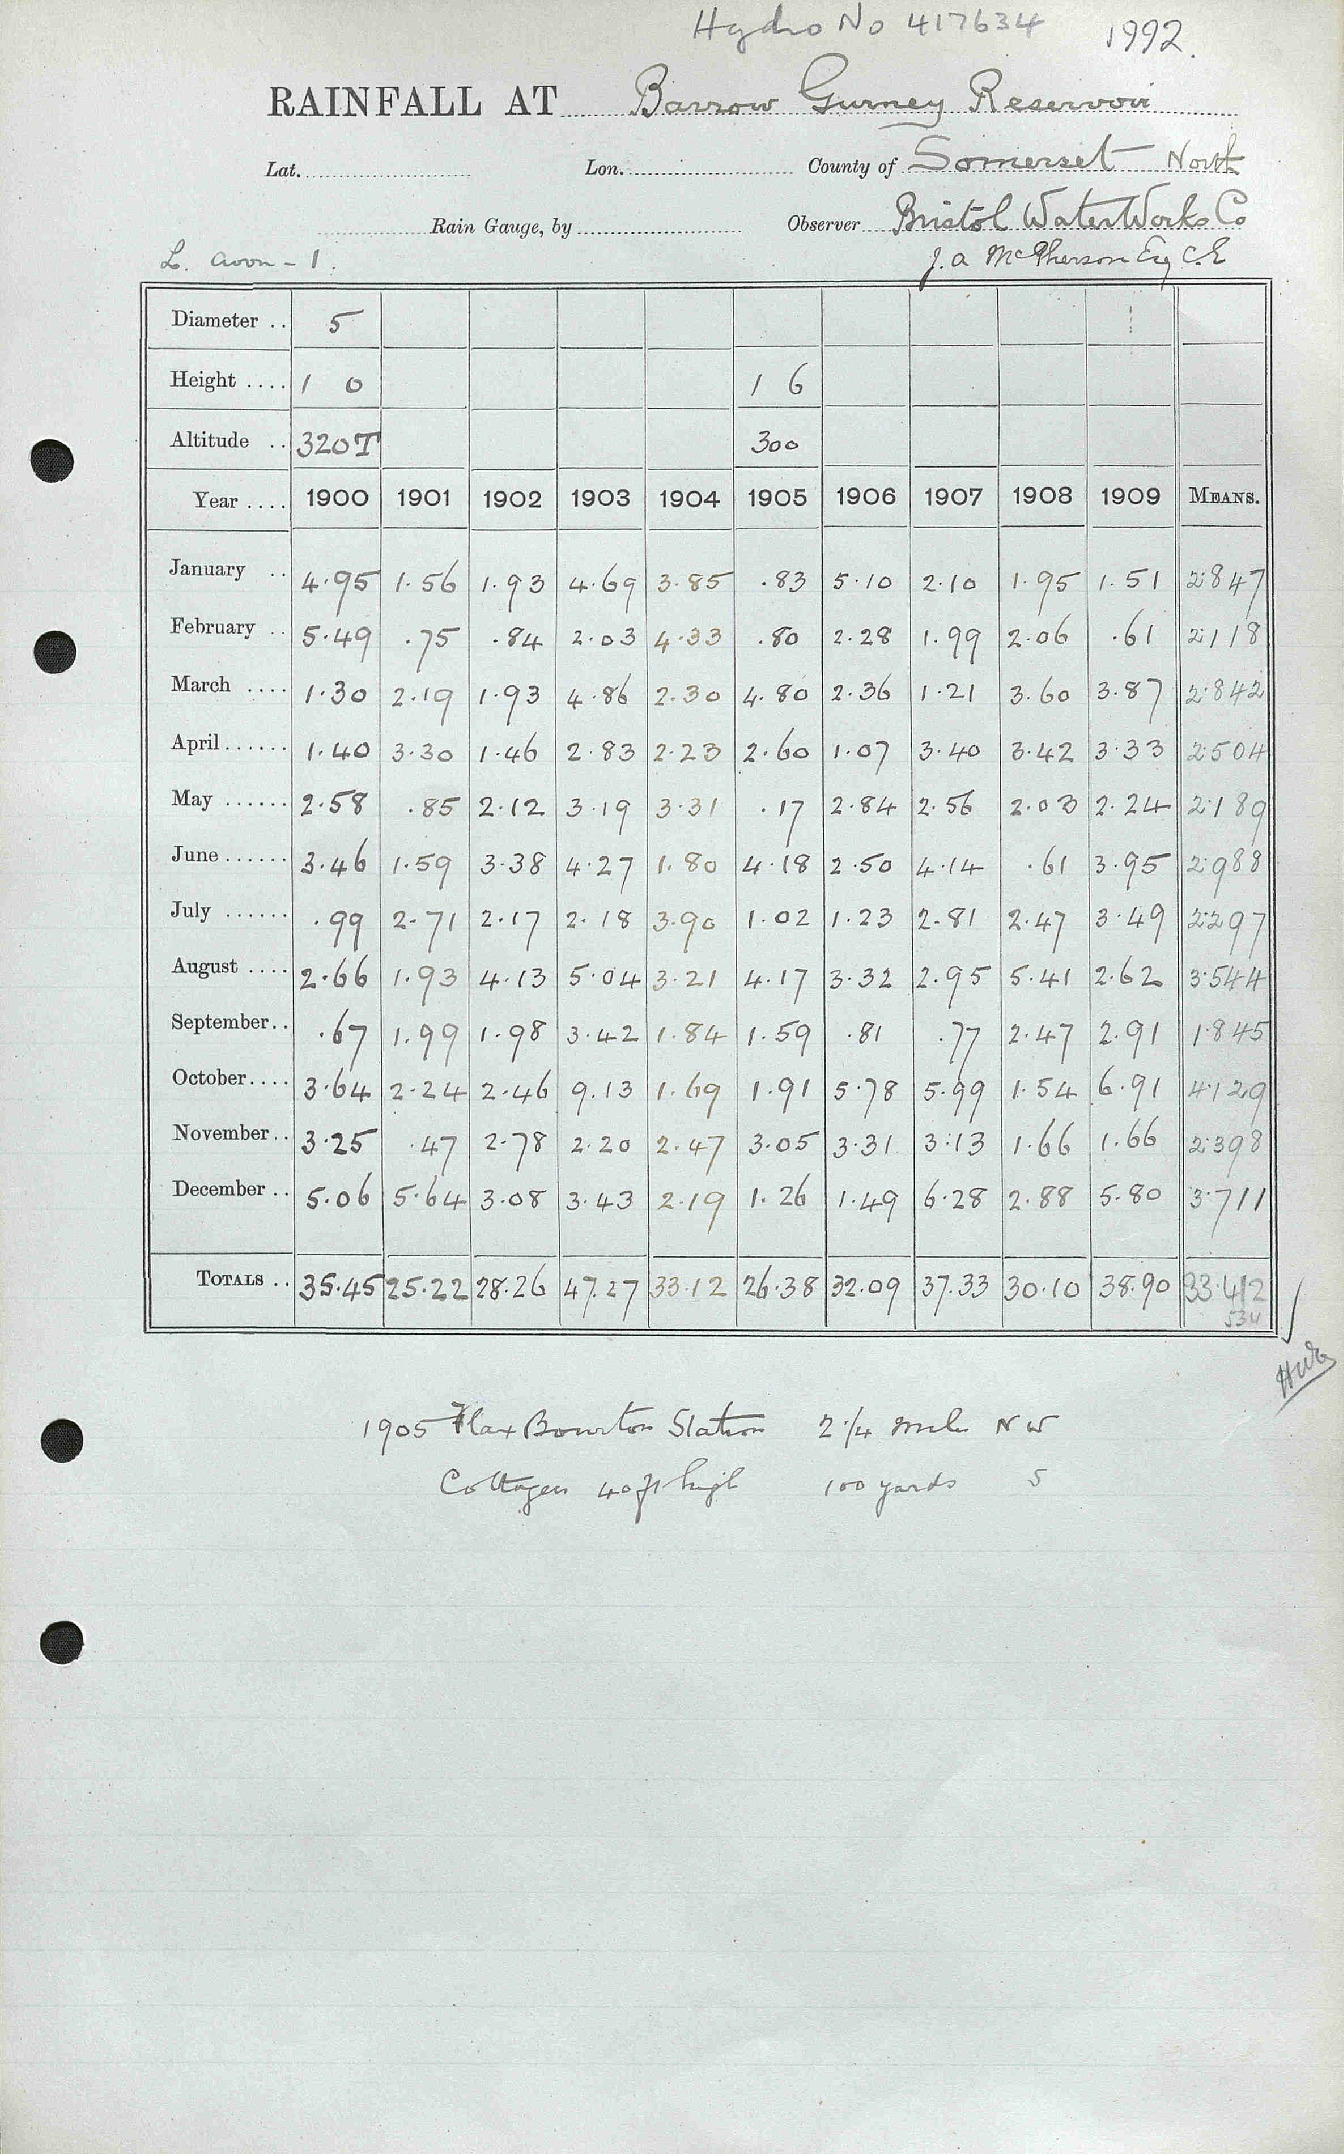 Hydro No 417634 1992.
RAINFALL AT Barrow Gurney Reservoir
Lat. Lon. County of Somerset North
Rain Gauge, by Observer Bristol Water Works Co
L. Avon - 1. J. A McPherson Esq C.E
Diameter .. 5
Height .... 1 0 1 6
Altitude .. 320T 300
Year .... 1900 1901 1902 1903 1904 1905 1906 1907 1908 1909 MEANS.
January .. 4.95 1.56 1.93 4.69 3.85 .83 5.10 2.10 1.95 1.51 2.847
February .. 5.49 .75 .84 2.03 4.33 .80 2.28 1.99 2.06 .61 2.118
March .... 1.30 2.19 1.93 4.86 2.30 4.80 2.36 1.21 3.60 3.87 2.842
April ...... 1.40 3.30 1.46 2.83 2.23 2.60 1.07 3.40 3.42 3.33 2.504
May ...... 2.58 .85 2.12 3.19 3.31 .17 2.84 2.56 2.03 2.24 2.189
June ...... 3.46 1.59 3.38 4.27 1.80 4.18 2.50 4.14 .61 3.95 2.988
July ...... .99 2.71 2.17 2.18 3.90 1.02 1.23 2.81 2.47 3.49 2.297
August .... 2.66 1.93 4.13 5.04 3.21 4.17 3.32 2.95 5.41 2.62 3.544
September.. .67 1.99 1.98 3.42 1.84 1.59 .81 .77 2.47 2.91 1.845
October.... 3.64 2.24 2.46 9.13 1.69 1.91 5.78 5.99 1.54 6.91 4.129
November.. 3.25 .47 2.78 2.20 2.47 3.05 3.31 3.13 1.66 1.66 2.398
December .. 5.06 5.64 3.08 3.43 2.19 1.26 1.49 6.28 2.88 5.80 3.711
TOTALS .. 35.45 25.22 28.26 47.27 33.12 26.38 32.09 37.33 30.10 38.90 33.412
534
1905 Flax Bourton Station 2 1/4 mile NW
Cottages 40 ft high 100 yards S